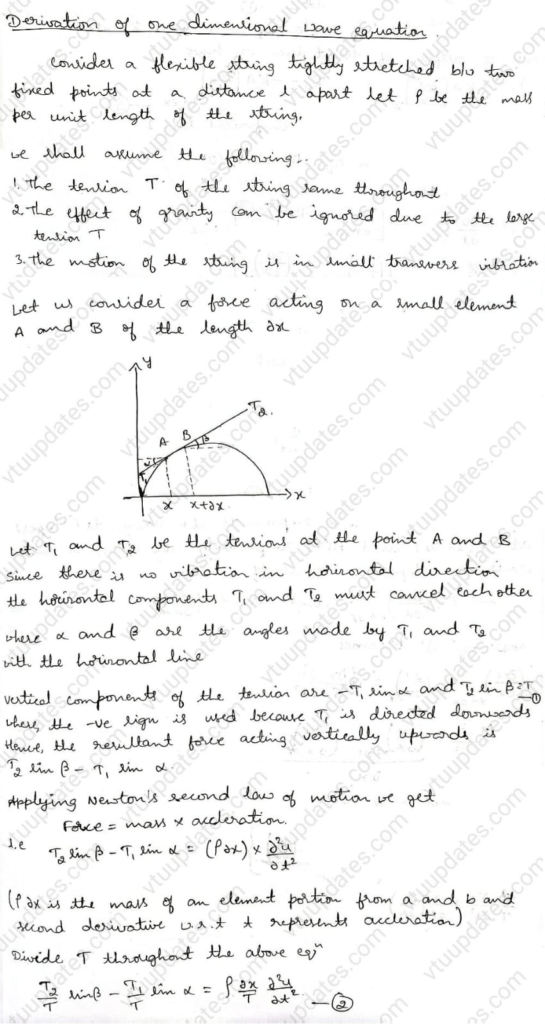 Derivation of one dimensional wave equation.
Consider a flexible string tightly stretched b/w two
fixed points at a distance l apart let ρ be the mass
per unit length of the string.
we shall assume the following:-
1. The tension T of the string same throughout
2. The effect of gravity can be ignored due to the large
tension T
3. The motion of the string is in small transvers vibration
Let us consider a force acting on a small element
A and B of the length ∂x
y
T₂
A B β
α
T₁
x x+∂x x
Let T₁ and T₂ be the tensions at the point A and B
Since there is no vibration in horizontal direction
the horizontal components T₁ and T₂ must cancel each other
where α and β are the angles made by T₁ and T₂
with the horizontal line
vertical components of the tension are -T₁ sin α and T₂ sin β = T
①
where, the -ve sign is used because T₁ is directed downwards
Hence, the resultant force acting vertically upwards is
T₂ sin β - T₁ sin α.
Applying Newton's second law of motion we get
Force = mass x accleration.
i.e T₂ sin β - T₁ sin α = (ρ∂x) x ∂²u/∂t²
(ρ∂x is the mass of an element portion from a and b and
second derivative w.r.t t represents accleration)
Divide T throughout the above eqⁿ
T₂/T sinβ - T₁/T sin α = ρ ∂x/T ∂²u/∂t² - ②
vtuupdates.com